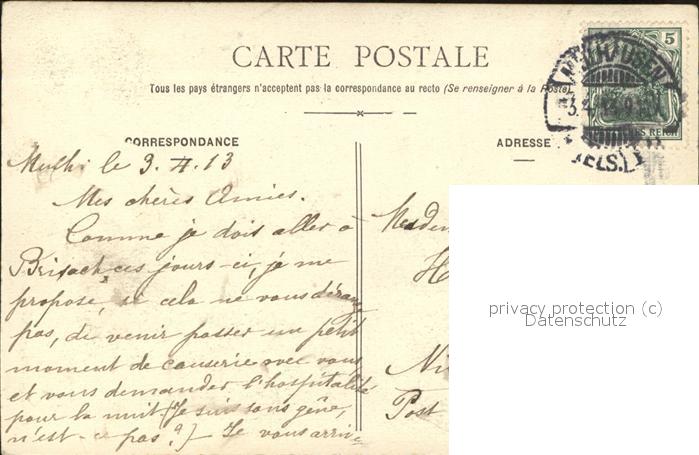 CARTE POSTALE
Tous les pays étrangers n'acceptent pas la correspondance au recto (Se renseigner à la Poste)
CORRESPONDANCE
ADRESSE
5
REICH
(ELS.)
Mulh. le 3. 4. 13
Mes chères Amies.
Comme je dois aller à
Brisach ces jours-ci, je me
propose, si cela ne vous dérange
pas, de venir passer un petit
moment de causerie avec vous
et vous demander l'hospitalité
pour la nuit (Je suis sans gêne,
n'est-ce pas?) Je vous arri-
Mesdem
H
Ni
Post
privacy protection (c)
Datenschutz